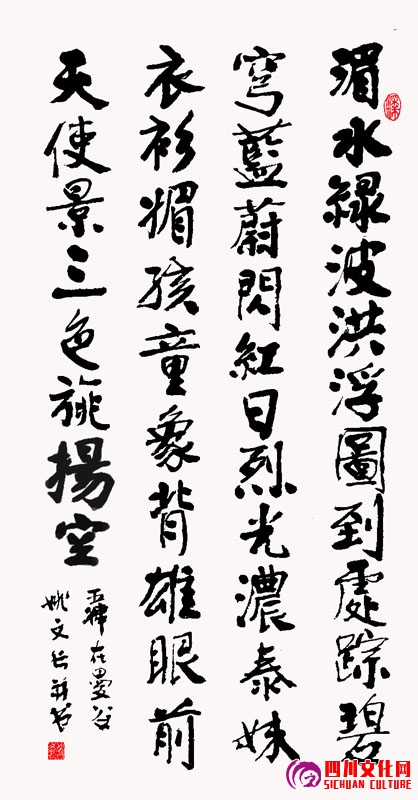 湄水緑波洪浮圖到處踪碧
穹藍蔚閃紅日烈光濃泰妹
衣衫媚孩童象背雄眼前
天使景三色旐揚空
五律在曼谷
姚文长并书
四川文化网
SICHUAN CULTURE